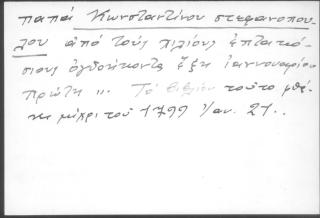 παπά Κωνσταντίνου στεφανοπου-
λου ἀπό τούς χιλίους ἑπτακό-
σιους ὀγδοήκοντα ἕξη ἰαννουαρίου
πρώτη ,, Τό βιβλίον τοῦτο
μέχρι τοῦ 1799 Ἰαν. 21..